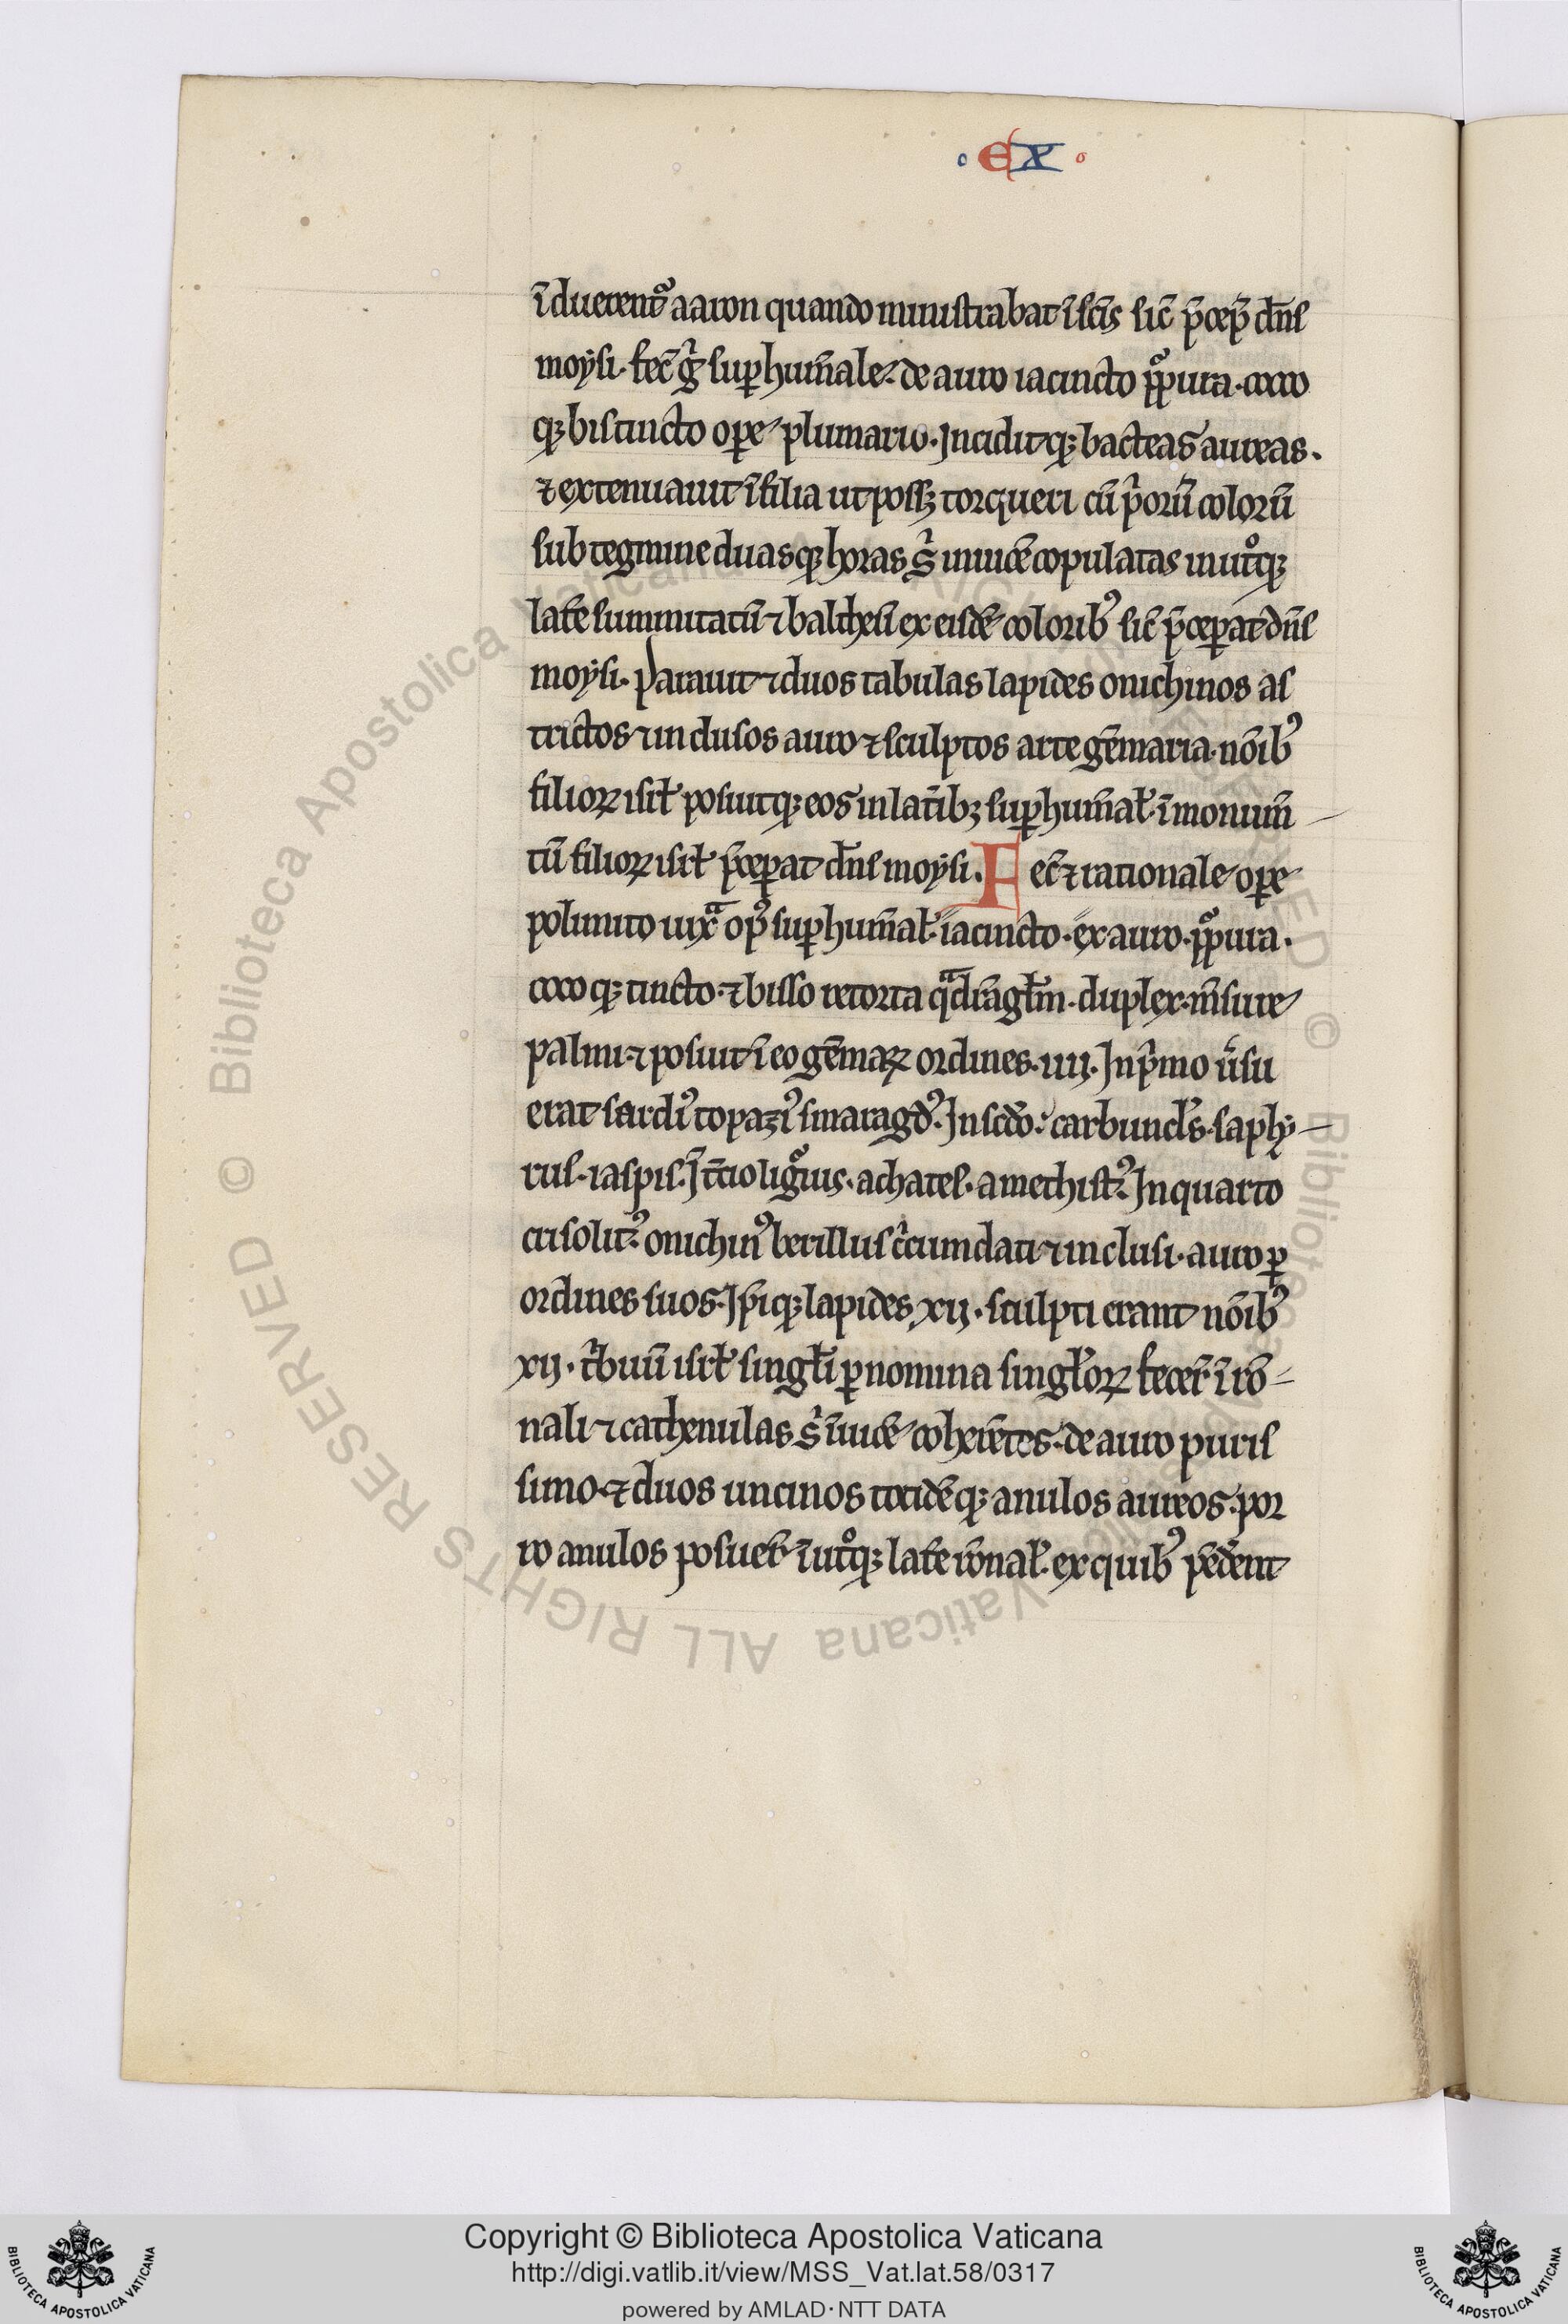 · EX ·
ī dueren̄t aaron quando ministrabat ī sc̄is sic̄ p̄cep̄ dn̄s
moysi. fec̄ gͥ suꝑhum̄ale. de auro iacincto ꝑpura. cocco
qꝫ bis tincto oꝑe plumario. Inciditqꝫ bacteas aureas.
⁊ extenuauit ī filia ut possꝫ torqueri cū pͥorū colorū
subtegmine duasqꝫ horas sͥ inuicē copulatas in utͦqꝫ
lat̄e summitatū ⁊ baltheū ex eisdē coloribꝰ sic̄ p̄ceꝑat dn̄s
moysi. Parauit ⁊ duos tabulas lapides onichinos as
trictos ⁊ inclusos auro ⁊ sculptos arte gēmaria. nōibꝰ
filioꝝ isrł posuitqꝫ eos in lat̄ibꝫ suꝑhum̄ał. ī monum̄
tū filioꝝ isrł p̄ceꝑat dn̄s moysi. Fec̄ ⁊ rationale oꝑe
polimito iuxᵃ opꝰ suꝑhum̄ał. iacincto. ex auro. ꝑpura.
cocoqꝫ tincto. ⁊ bisso retorta qᵃdrāgłm. duplex. m̄sure
palmi ⁊ posuit ī eo gēmaꝝ ordines. iiij. In pͥmo ūsu
erat sardiꝰ topaziꝰ smaragdꝰ. In sc̄do. carbuncłs. saphy
rus. iaspis. I t̄cio ligͦius. achates. amethistꝰ. In quarto
crisolitꝰ. onichinꝰ berillus cͥcumdati ⁊ inclusi. auro ꝑ
ordines suos. Ip̄iqꝫ lapides xij. sculpti erant nōibꝰ
xij. tͥbuū isrł singłi ꝑ nomina singłoꝝ fecer̄ ī rō
nali ⁊ cathenulas sͥ īuicē coherētes. de auro puris
simo. ⁊ duos uncinos totidēqꝫ anulos aureos. por
ro anulos posuer̄ ī utͦqꝫ lat̄e rōnał. ex quibꝰ pēdēnt
© Biblioteca Apostolica Vaticana ALL RIGHTS RESERVED
Copyright © Biblioteca Apostolica Vaticana
http://digi.vatlib.it/view/MSS_Vat.lat.58/0317
powered by AMLAD · NTT DATA
BIBLIOTECA APOSTOLICA VATICANA
BIBLIOTECA APOSTOLICA VATICANA